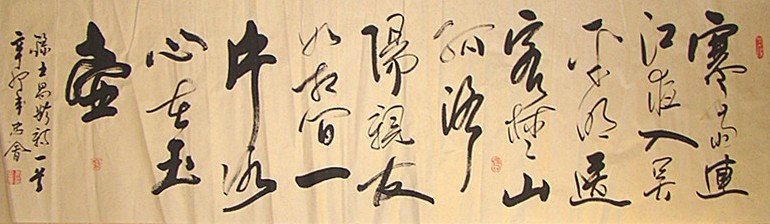 寒雨連
江夜入吴
平明送
客楚山
孤洛
陽親友
如相問一
片冰
心在玉
壺
錄王昌齡詩一首
辛卯年